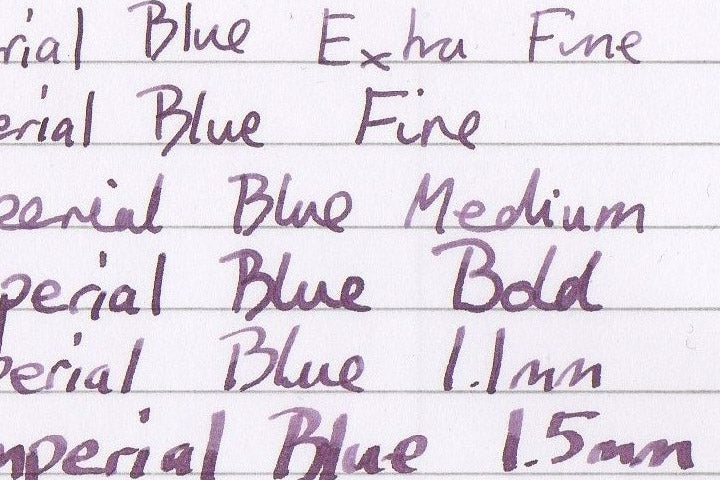 rial Blue Extra Fine
erial Blue Fine
eerial Blue Medium
perial Blue Bold
perial Blue 1.1mm
mperial Blue 1.5mm